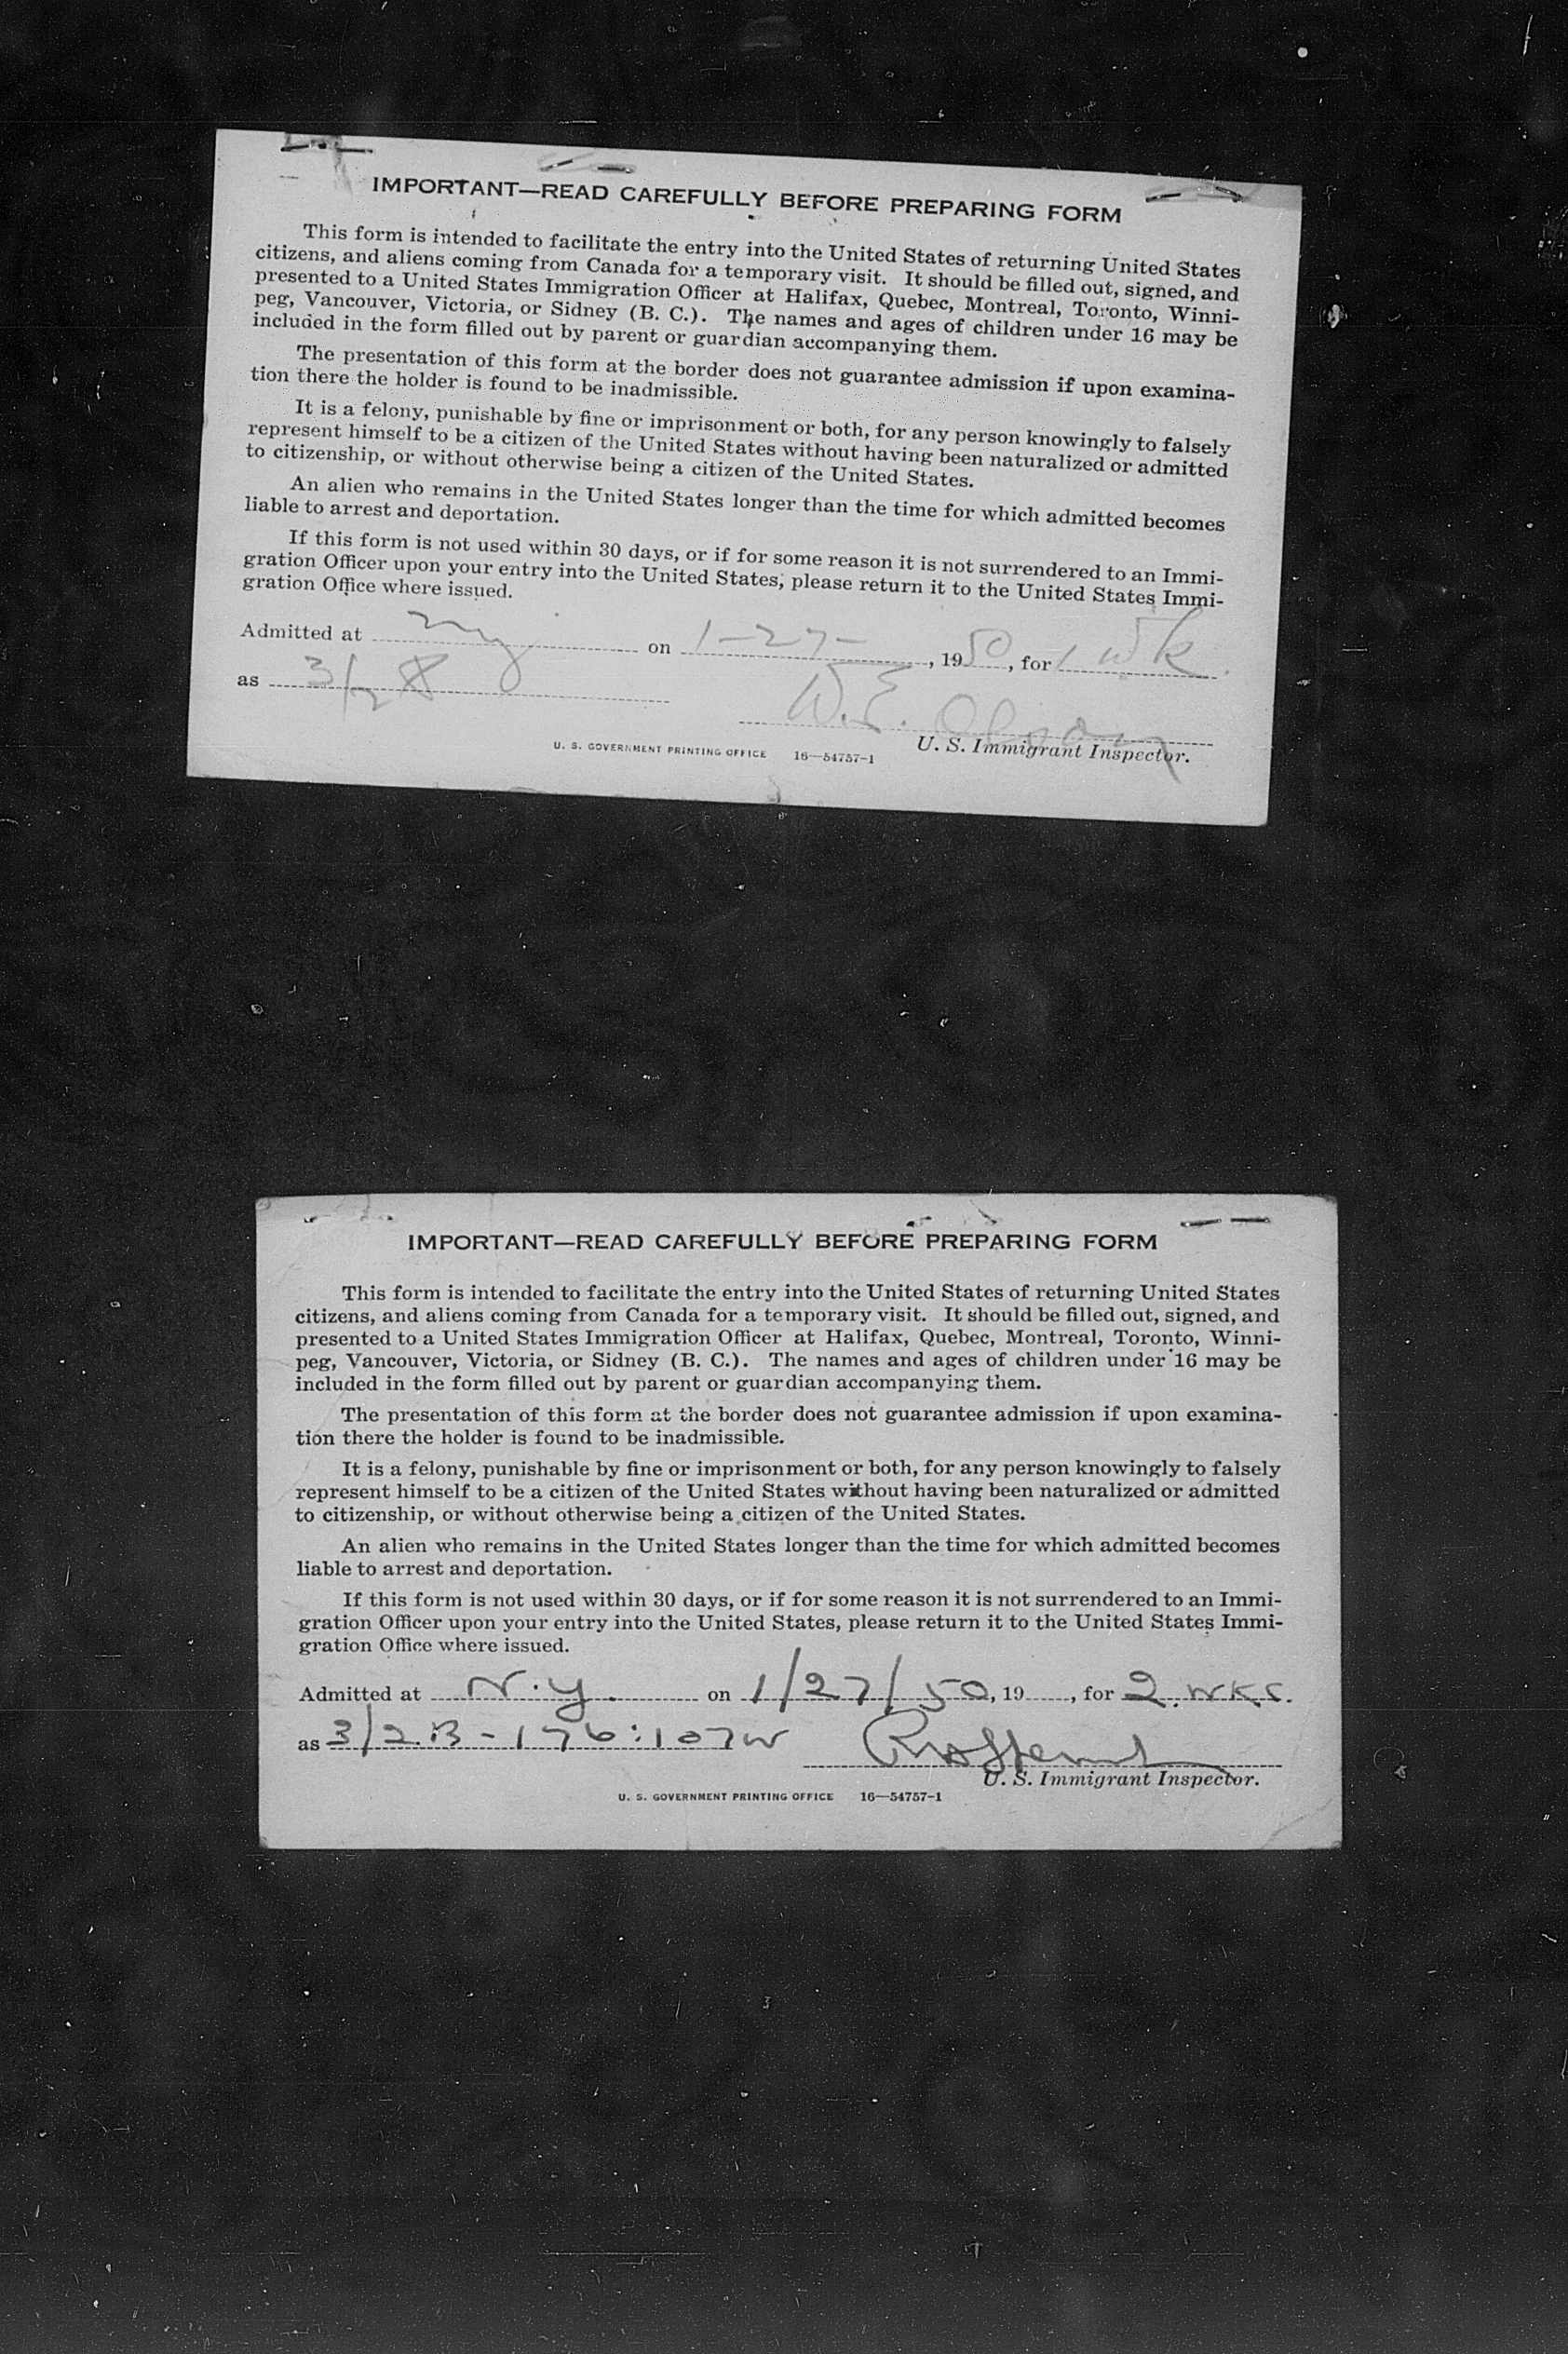 IMPORTANT—READ CAREFULLY BEFORE PREPARING FORM
This form is intended to facilitate the entry into the United States of returning United States
citizens, and aliens coming from Canada for a temporary visit. It should be filled out, signed, and
presented to a United States Immigration Officer at Halifax, Quebec, Montreal, Toronto, Winni-
peg, Vancouver, Victoria, or Sidney (B. C.). The names and ages of children under 16 may be
included in the form filled out by parent or guardian accompanying them.
The presentation of this form at the border does not guarantee admission if upon examina-
tion there the holder is found to be inadmissible.
It is a felony, punishable by fine or imprisonment or both, for any person knowingly to falsely
represent himself to be a citizen of the United States without having been naturalized or admitted
to citizenship, or without otherwise being a citizen of the United States.
An alien who remains in the United States longer than the time for which admitted becomes
liable to arrest and deportation.
If this form is not used within 30 days, or if for some reason it is not surrendered to an Immi-
gration Officer upon your entry into the United States, please return it to the United States Immi-
gration Office where issued.
Admitted at NY on 1-27-, 1950, for 1 wk
as 3/2 B W. E. Olson
U. S. GOVERNMENT PRINTING OFFICE 16—54757-1 U. S. Immigrant Inspector.
IMPORTANT—READ CAREFULLY BEFORE PREPARING FORM
This form is intended to facilitate the entry into the United States of returning United States
citizens, and aliens coming from Canada for a temporary visit. It should be filled out, signed, and
presented to a United States Immigration Officer at Halifax, Quebec, Montreal, Toronto, Winni-
peg, Vancouver, Victoria, or Sidney (B. C.). The names and ages of children under 16 may be
included in the form filled out by parent or guardian accompanying them.
The presentation of this form at the border does not guarantee admission if upon examina-
tion there the holder is found to be inadmissible.
It is a felony, punishable by fine or imprisonment or both, for any person knowingly to falsely
represent himself to be a citizen of the United States without having been naturalized or admitted
to citizenship, or without otherwise being a citizen of the United States.
An alien who remains in the United States longer than the time for which admitted becomes
liable to arrest and deportation.
If this form is not used within 30 days, or if for some reason it is not surrendered to an Immi-
gration Officer upon your entry into the United States, please return it to the United States Immi-
gration Office where issued.
Admitted at N.Y. on 1/27/50, 19, for 2. WKS.
as 3/2.B-176:107W
U. S. Immigrant Inspector.
U. S. GOVERNMENT PRINTING OFFICE 16—54757-1